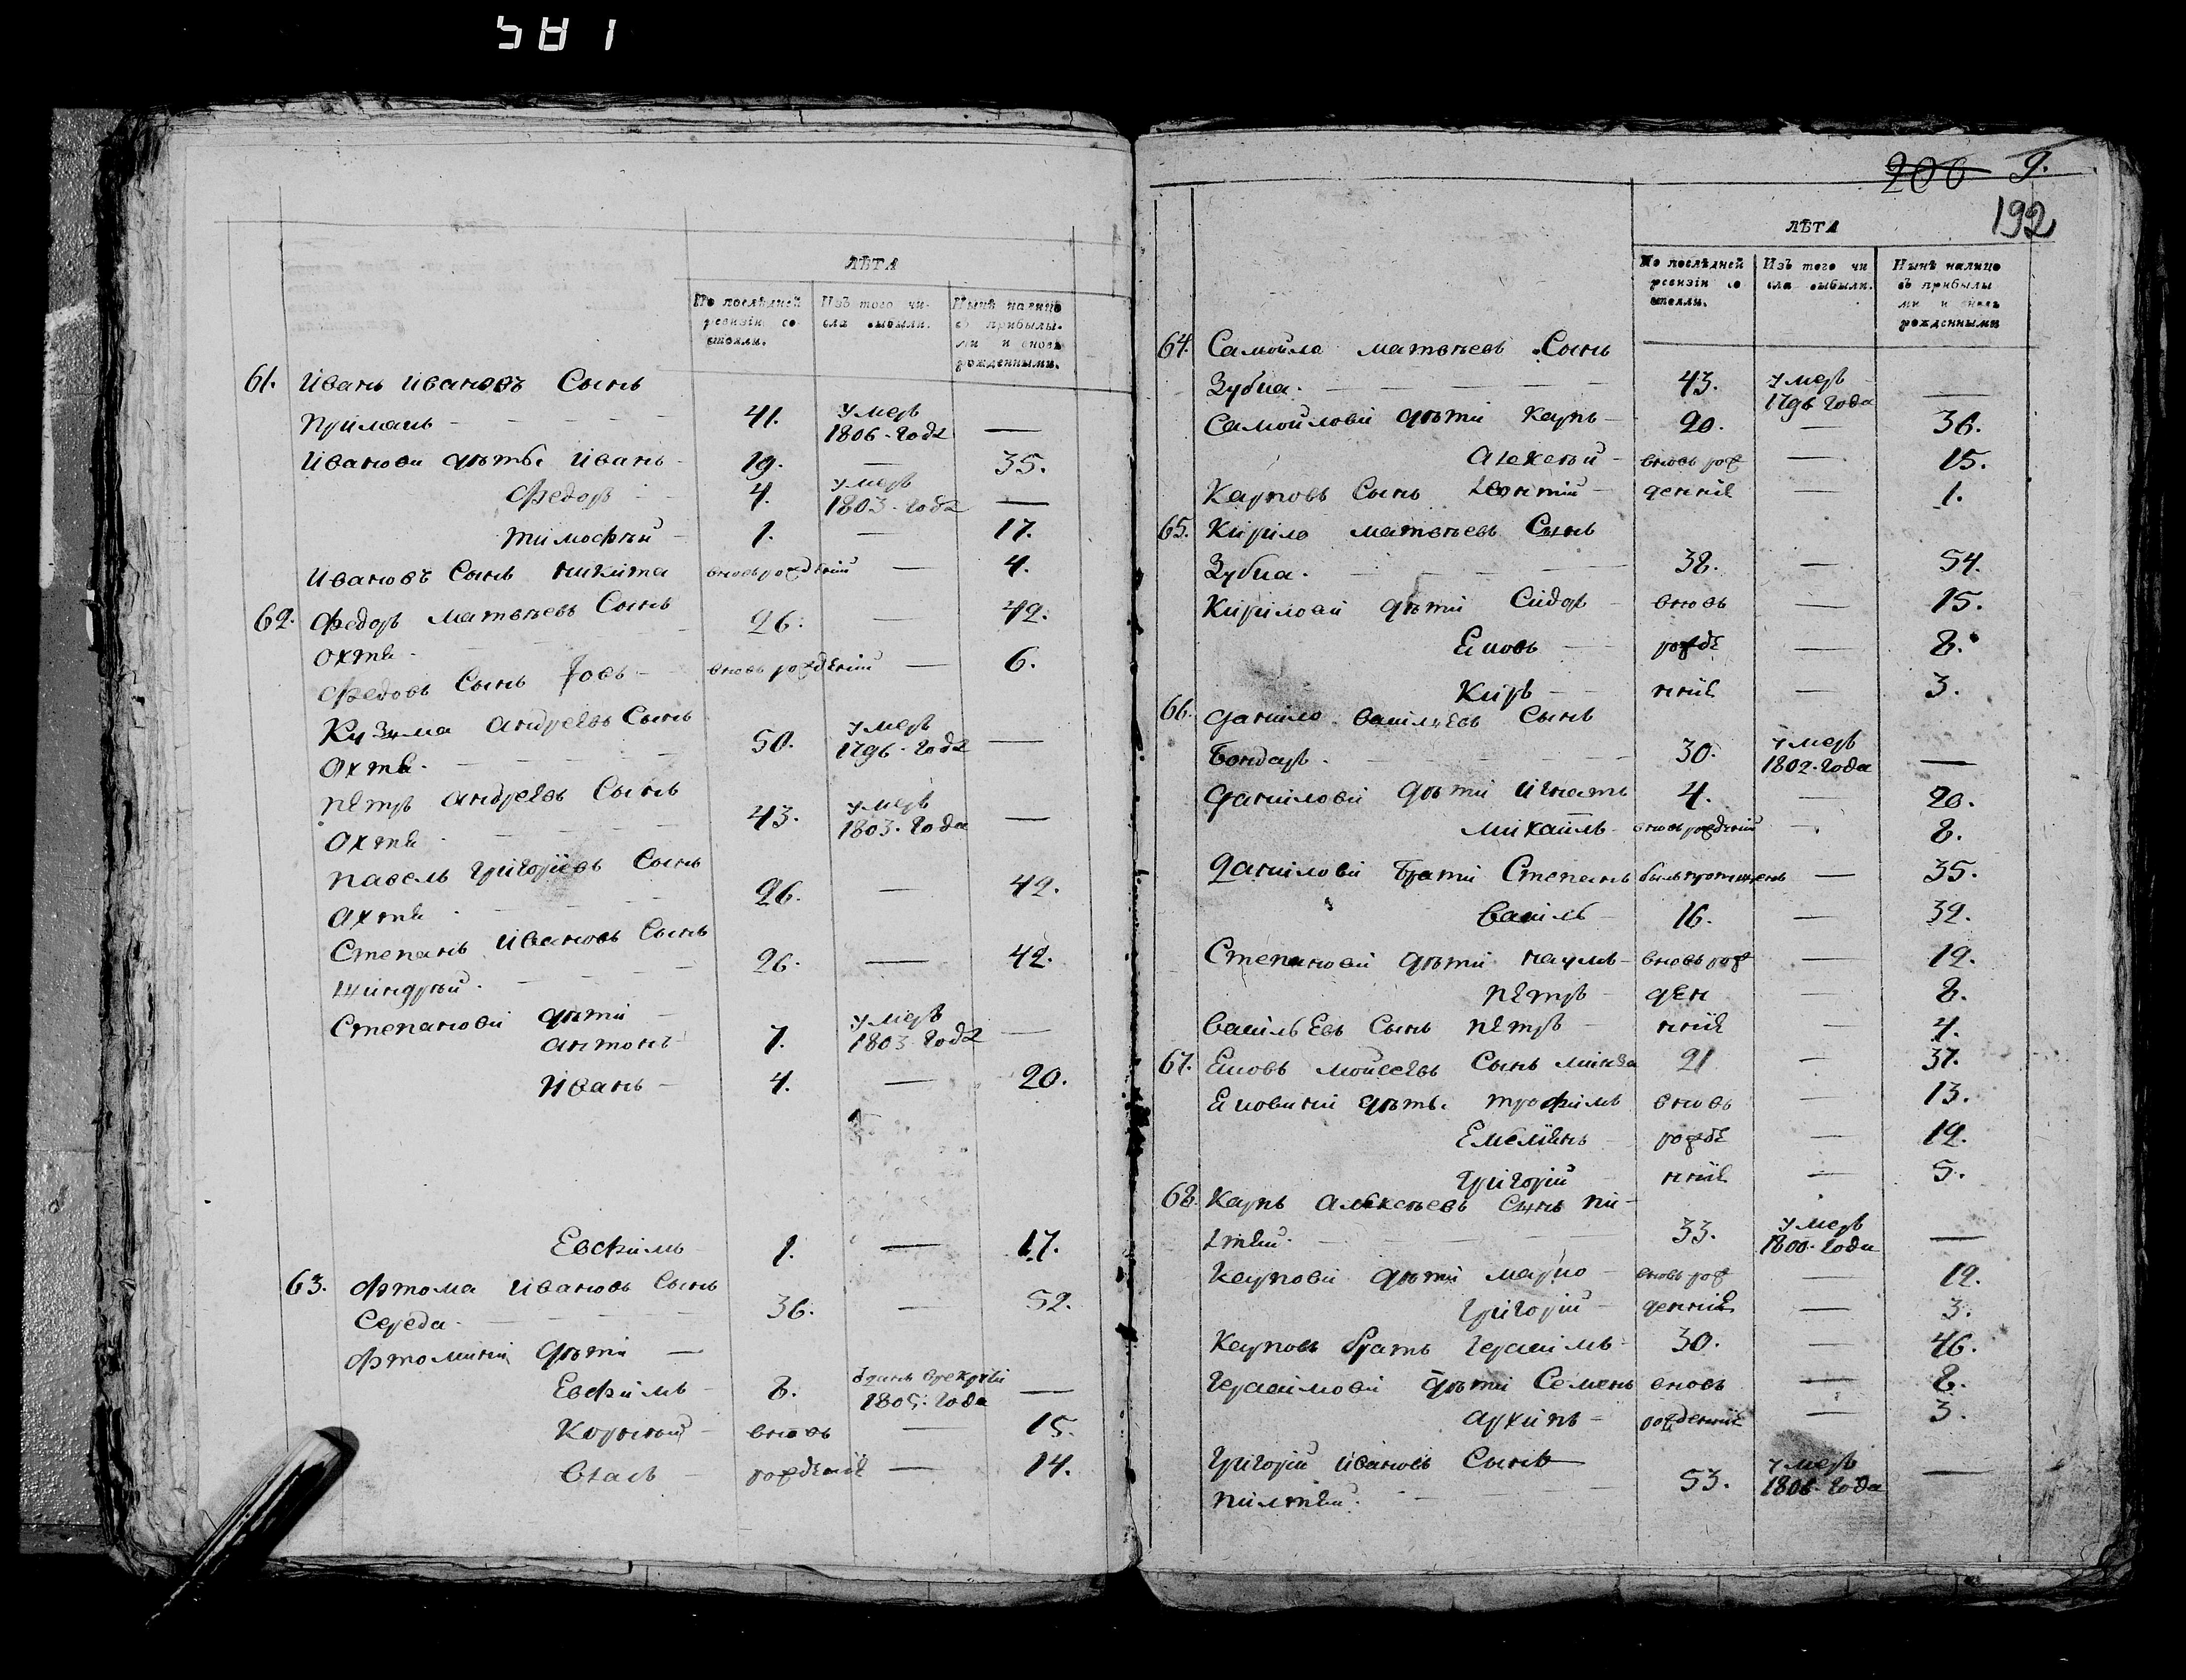 581
ЛѢТА
По послѣдней ревизіи состояли.
Изъ того числа выбыли.
Нынѣ налицо съ прибылыми и вновь рожденными.
61. Иванъ Ивановъ Сынъ
Прімакъ 41. умеръ 1806. года —
Иванови дѣты Иванъ 19. — 35.
Федоръ 4. умеръ 1803. года —
Тимофѣй 1. — 17.
Ивановъ Сынъ Никита вновь рожденій — 4.
62. Федоръ Матвѣевъ Сынъ 26. — 42.
Охтѣ
Федовъ Сынъ вновь рожденій — 6.
Кузма Андреевъ Сынъ
Охтѣ. 50. умеръ 1796. года —
Петръ Андреевъ Сынъ
Охтѣ 43. умеръ 1803. года —
Павелъ Григоріевъ Сынъ
Охтѣ 26. — 42.
Степанъ Ивановъ Сынъ
26. — 42.
Степанови дѣти —
Антонъ 7. умеръ 1803. года —
Иванъ 4. — 20.
Евфимъ 1. — 17.
63. Фтома Ивановъ Сынъ
Середа 36. — 52.
Фтомини дѣти —
Евфимъ 8. 1805. года —
Корнѣй вновь — 15.
рожденніе — 14.
206 9.
192
ЛѢТА
По послѣдней ревизіи состояли.
Изъ того числа выбыли.
Нынѣ налицо съ прибылыми и вновь рожденными
64. Самойло Матвѣевъ Сынъ
Зубка. 43. умеръ 1796 года —
Самойлови дѣти Карпъ 20. — 36.
Алексѣй вновь рож — 15.
Карповъ Сынъ Леонтій денніе — 1.
65. Кирило Матвѣевъ Сынъ
Зубка. 38. — 54.
Кирилови дѣти Сидоръ вновь — 15.
Яковъ рожде — 8.
Киръ нніе — 3.
66. Данило Василіевъ Сынъ
Бондаръ. 30. умеръ 1802. года —
Данилови дѣти Игнатъ 4. — 20.
Михайлъ вновь рожденій — 8.
Данилови Брати Степанъ былъ пропущенъ — 35.
Василь 16. — 32.
Степанови дѣти Наумъ вновь рож — 12.
Петръ ден — 8.
Васильевъ Сынъ Петръ нніе — 4.
67. Яковъ Мойсеевъ Сынъ 21 — 37.
Яковини дѣты Трофимъ вновь — 13.
Емелянъ рожде — 12.
Григорій нніе — 5.
68. Карпъ Алексѣевъ Сынъ Пи
лтѣй. 33. умеръ 1800. года —
Карпови дѣти Марко вновь рож — 12.
Григорій денніе — 3.
Карповъ братъ Герасимъ 30. — 46.
Герасимови дѣти Семенъ вновь — 8.
Архипъ рожденніе — 3.
Григорій Ивановъ Сынъ
Пилтѣй. 53. умеръ 1806. года —